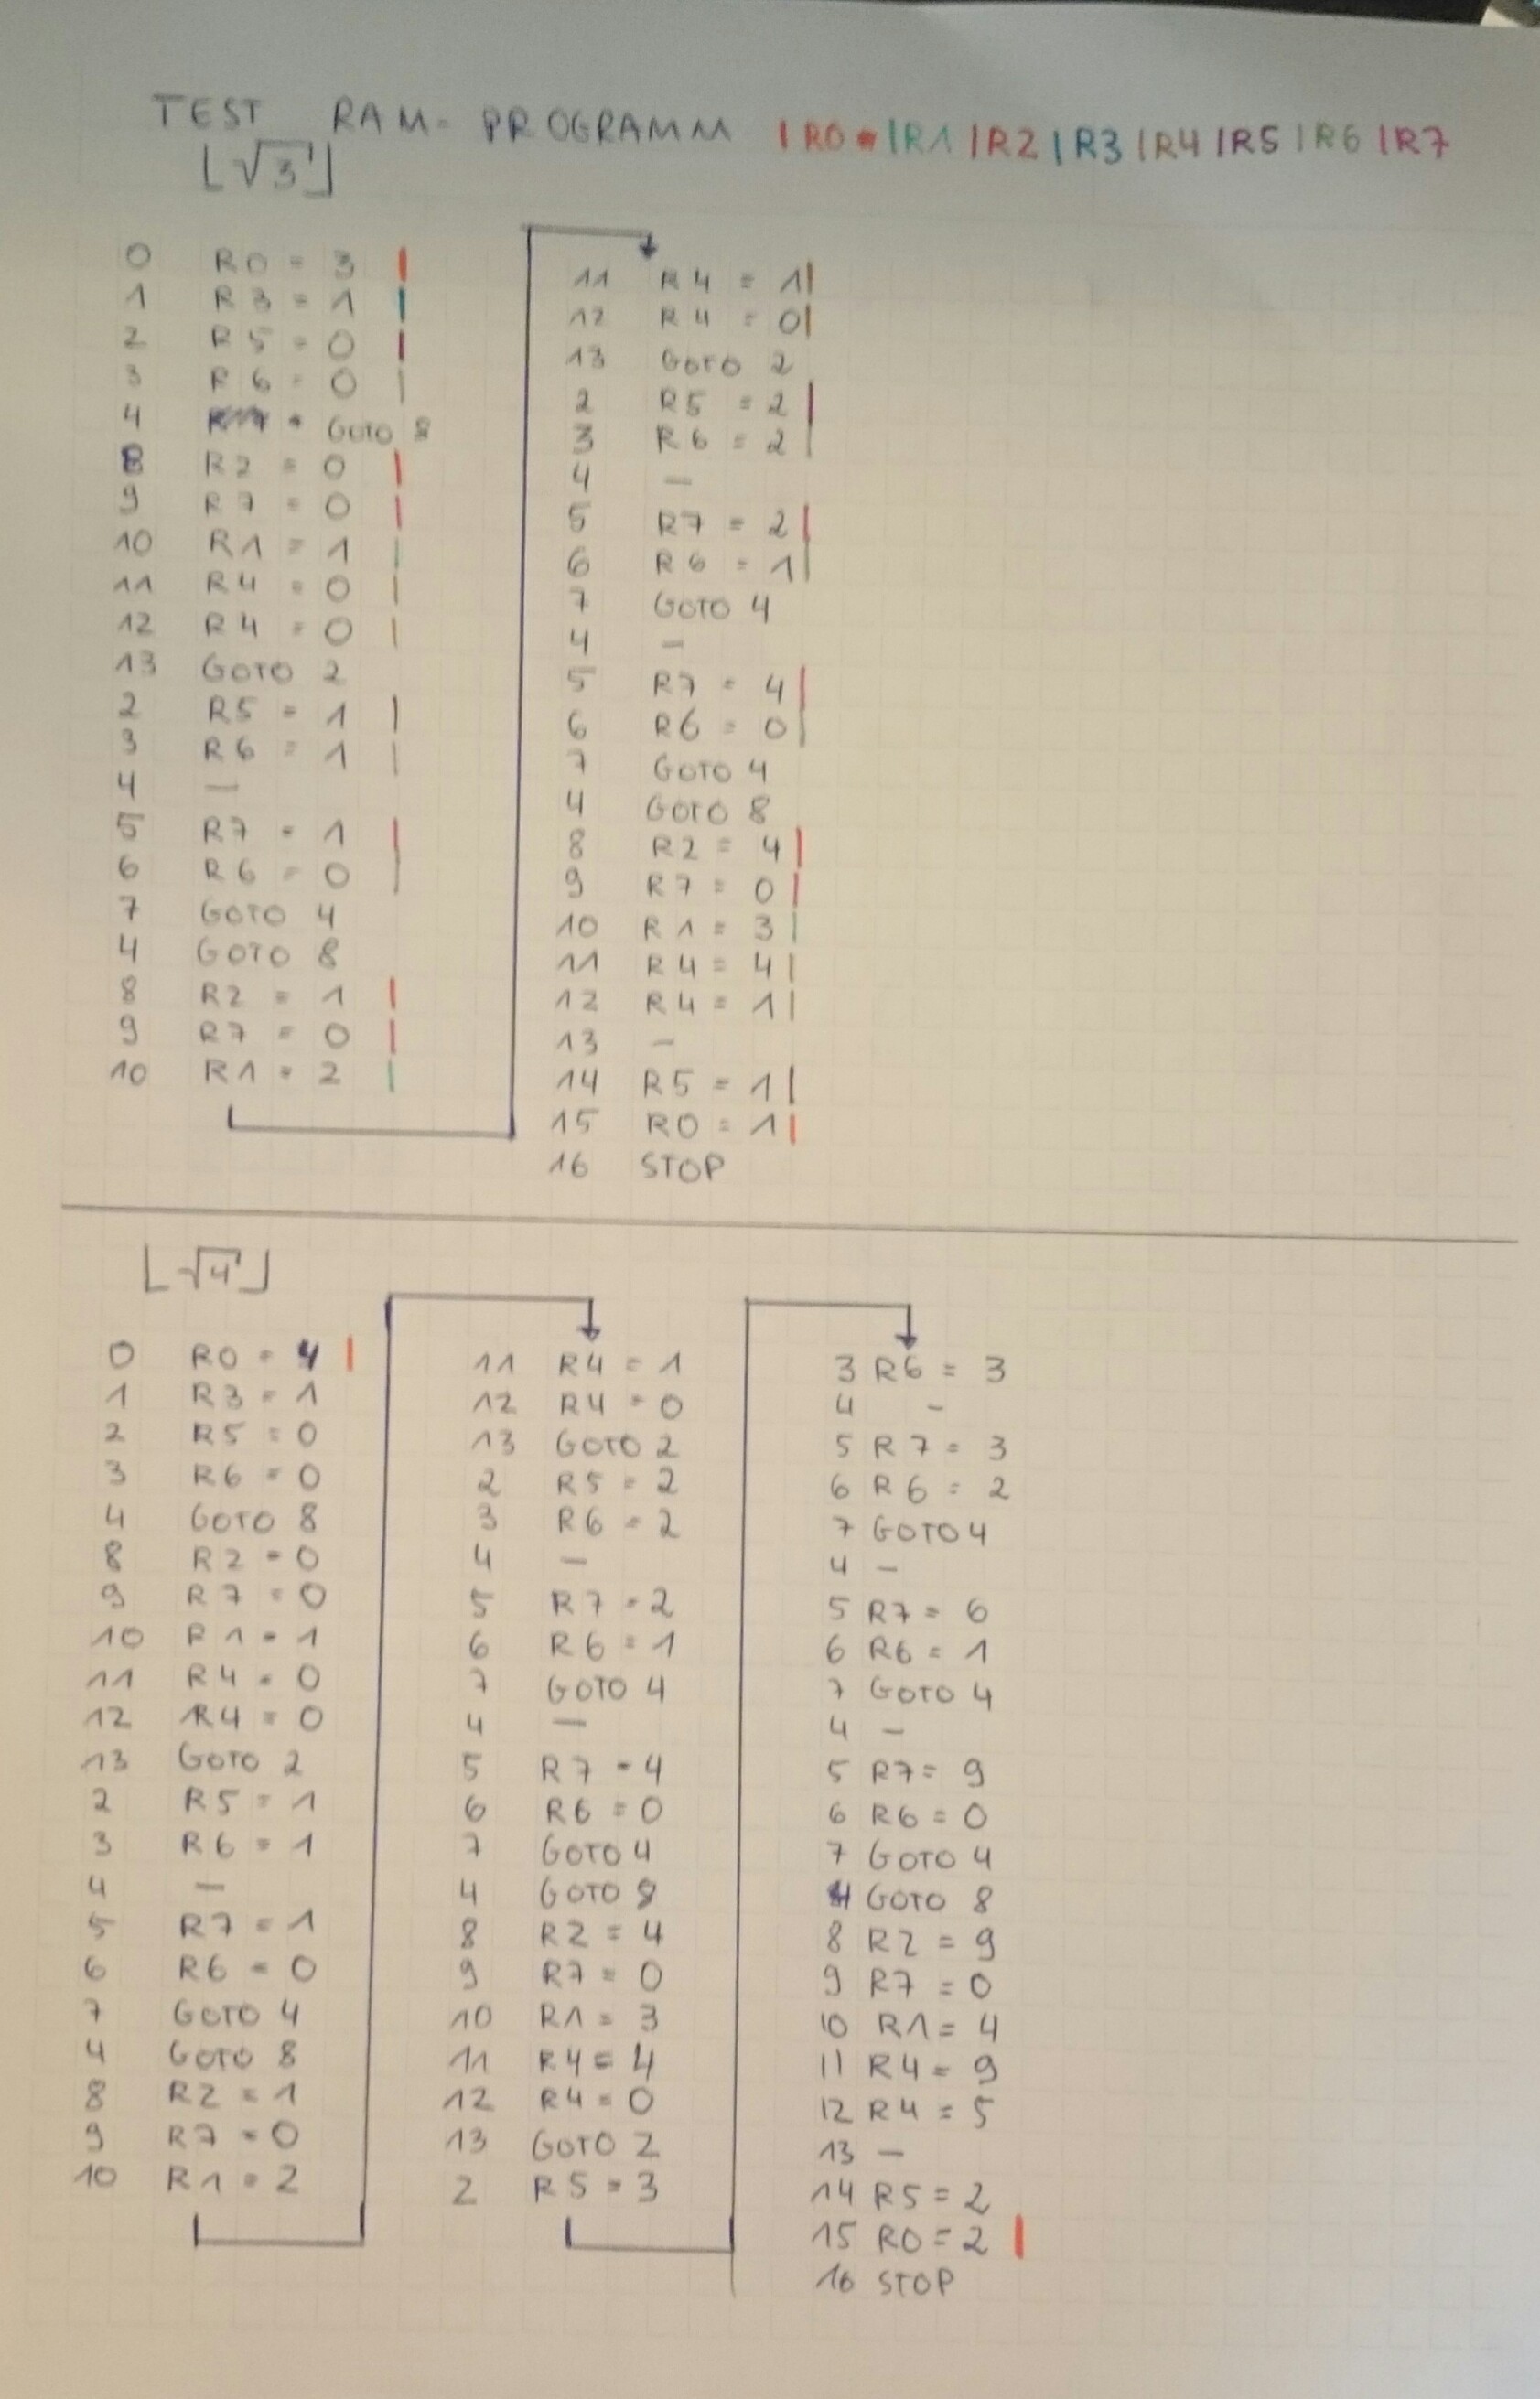 TEST RAM- PROGRAMM |R0 |R1 |R2 |R3 |R4 |R5 |R6 |R7
⌊√3⌋
0 R0 = 3 |
1 R3 = 1 |
2 R5 = 0 |
3 R6 = 0 |
4 GOTO 8
8 R2 = 0 |
9 R7 = 0 |
10 R1 = 1 |
11 R4 = 0 |
12 R4 = 0 |
13 GOTO 2
2 R5 = 1 |
3 R6 = 1 |
4 –
5 R7 = 1 |
6 R6 = 0 |
7 GOTO 4
4 GOTO 8
8 R2 = 1 |
9 R7 = 0 |
10 R1 = 2 |
11 R4 = 1 |
12 R4 = 0 |
13 GOTO 2
2 R5 = 2 |
3 R6 = 2 |
4 –
5 R7 = 2 |
6 R6 = 1 |
7 GOTO 4
4 –
5 R7 = 4 |
6 R6 = 0 |
7 GOTO 4
4 GOTO 8
8 R2 = 4 |
9 R7 = 0 |
10 R1 = 3 |
11 R4 = 4 |
12 R4 = 1 |
13 –
14 R5 = 1 |
15 R0 = 1 |
16 STOP
⌊√4⌋
0 R0 = 4 |
1 R3 = 1
2 R5 = 0
3 R6 = 0
4 GOTO 8
8 R2 = 0
9 R7 = 0
10 R1 = 1
11 R4 = 0
12 R4 = 0
13 GOTO 2
2 R5 = 1
3 R6 = 1
4 –
5 R7 = 1
6 R6 = 0
7 GOTO 4
4 GOTO 8
8 R2 = 1
9 R7 = 0
10 R1 = 2
11 R4 = 1
12 R4 = 0
13 GOTO 2
2 R5 = 2
3 R6 = 2
4 –
5 R7 = 2
6 R6 = 1
7 GOTO 4
4 –
5 R7 = 4
6 R6 = 0
7 GOTO 4
4 GOTO 8
8 R2 = 4
9 R7 = 0
10 R1 = 3
11 R4 = 4
12 R4 = 0
13 GOTO 2
2 R5 = 3
3 R6 = 3
4 –
5 R7 = 3
6 R6 = 2
7 GOTO 4
4 –
5 R7 = 6
6 R6 = 1
7 GOTO 4
4 –
5 R7 = 9
6 R6 = 0
7 GOTO 4
4 GOTO 8
8 R2 = 9
9 R7 = 0
10 R1 = 4
11 R4 = 9
12 R4 = 5
13 –
14 R5 = 2
15 R0 = 2 |
16 STOP